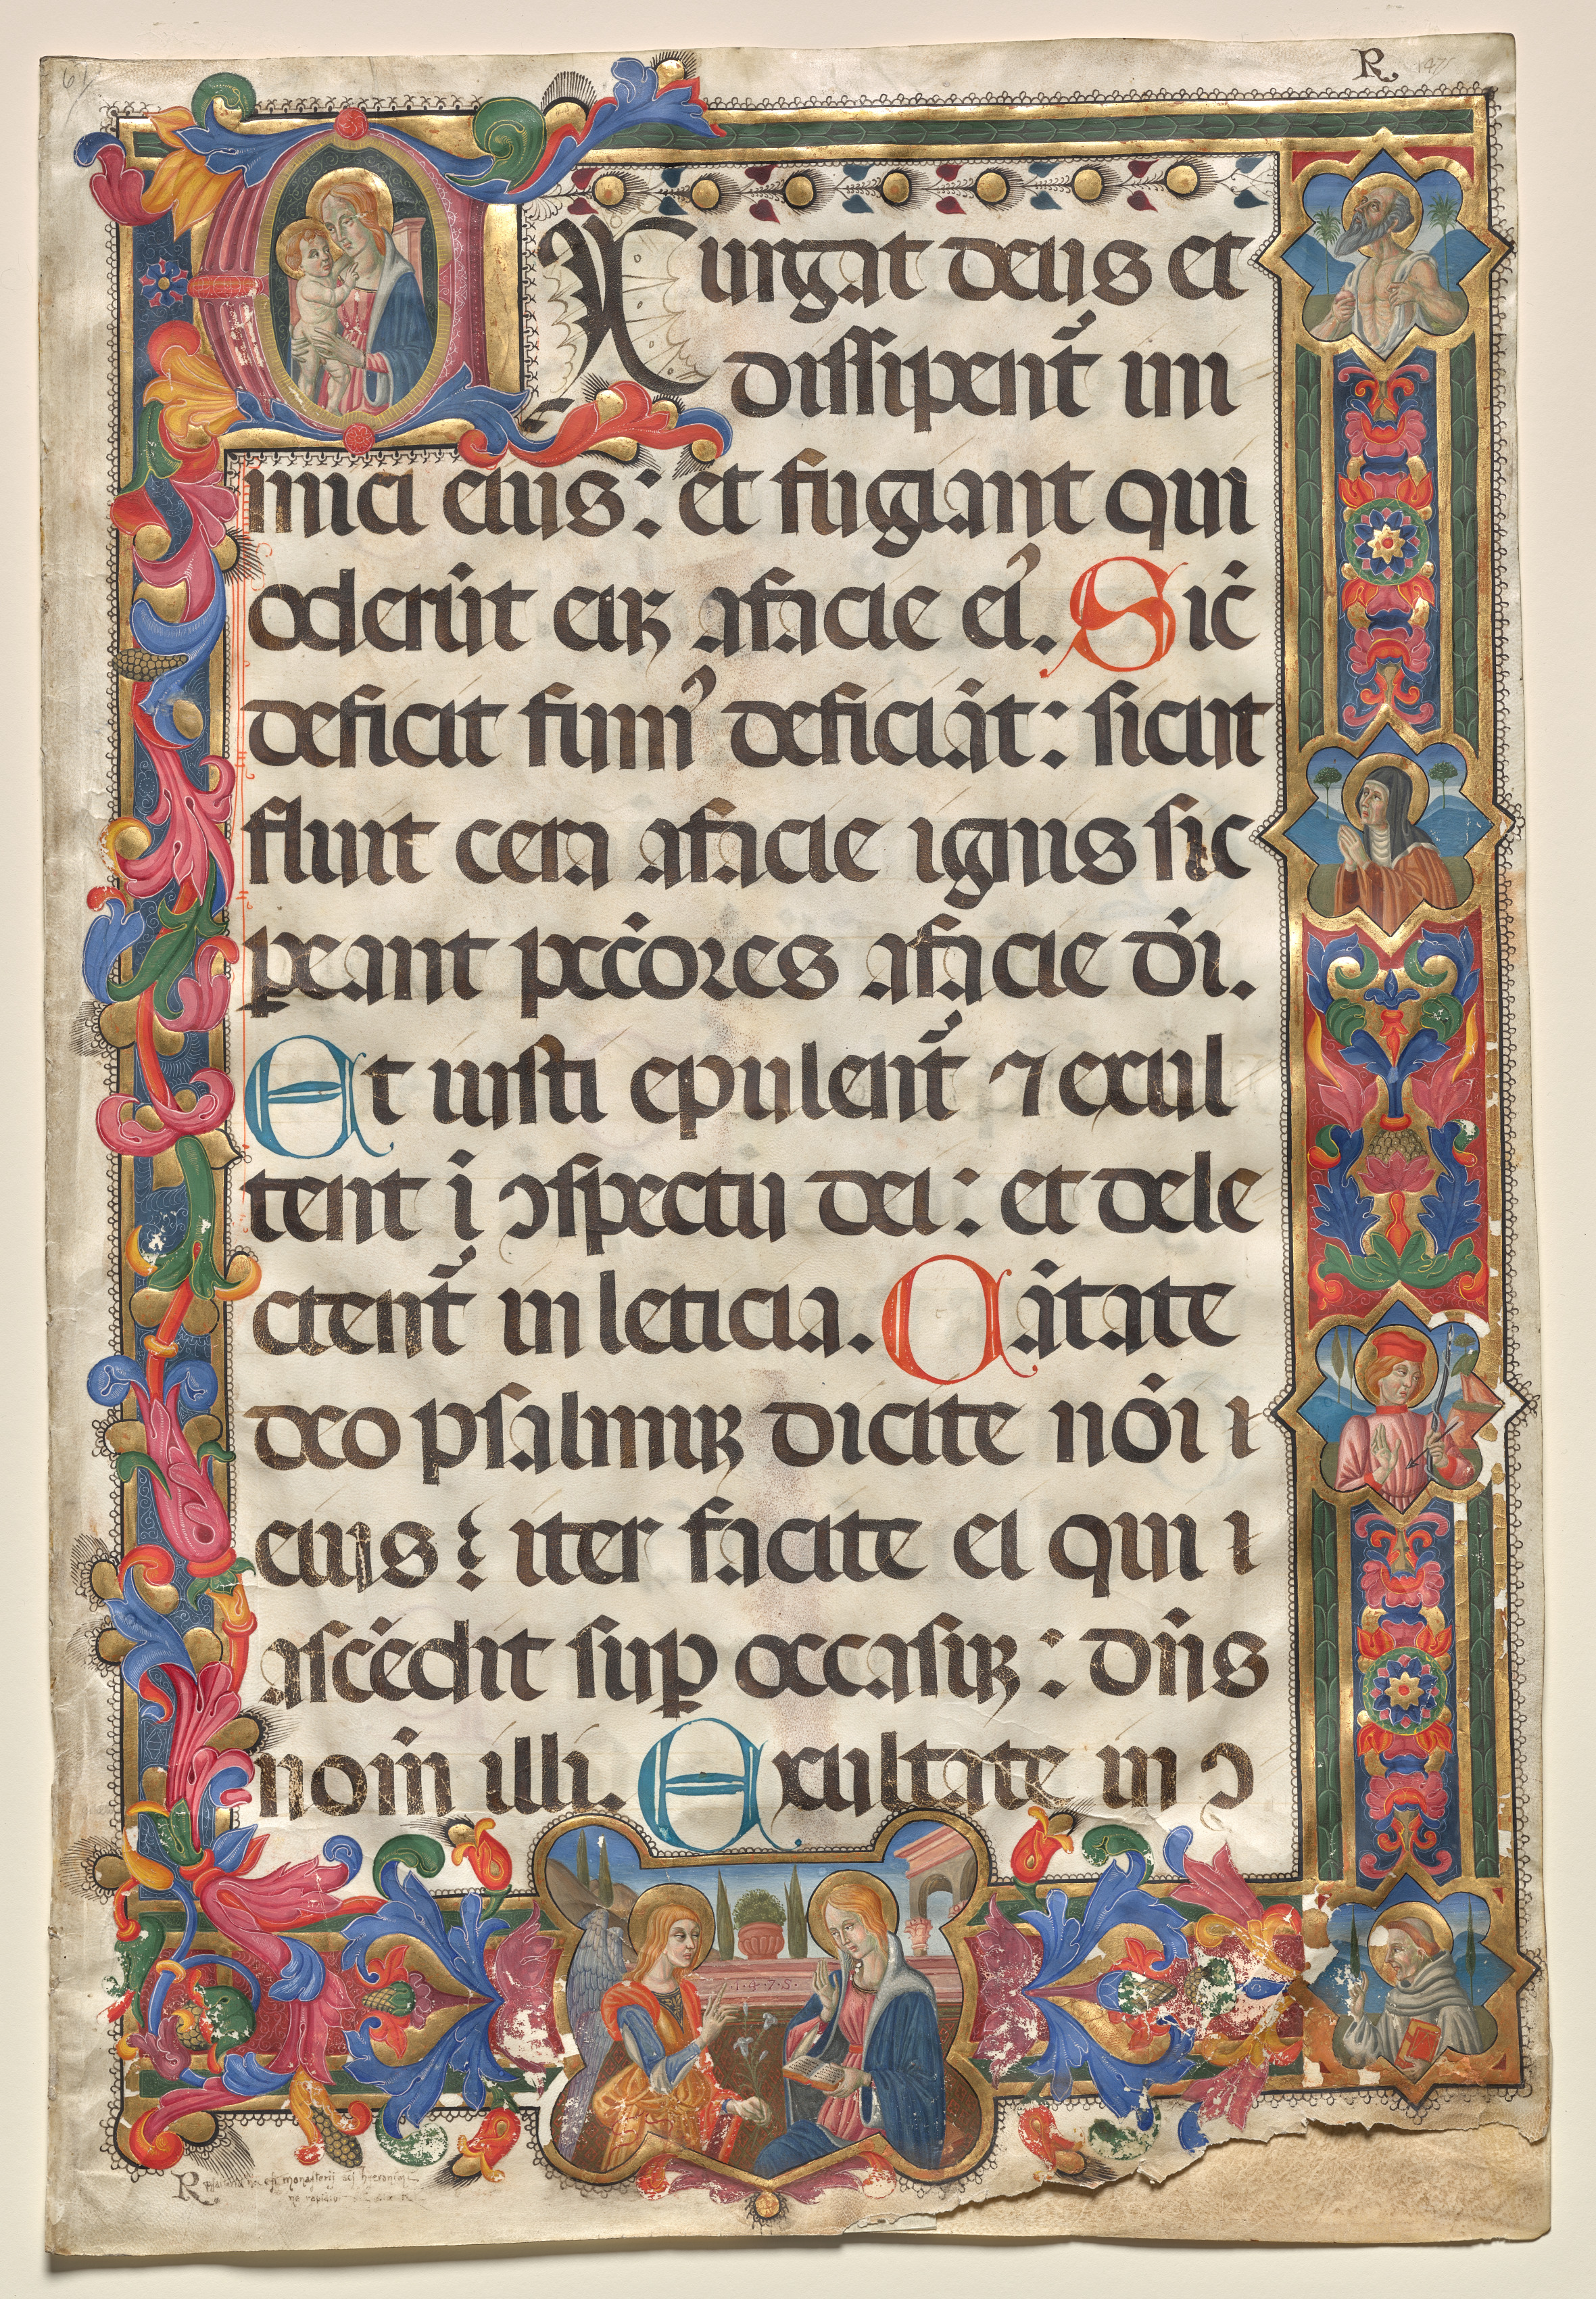 R
EXurgat deus et
dissipent᷑ ini
mici eius: et fugiant qui
oderūt euꝫ afacie eiꝰ. Sic̄
deficit fumꝰ deficiāt: sicut
fluit cera afacie ignis sic
ꝑeant pcc̄ores afacie dī.
Et iusti epulent᷑ ⁊ exul
tent ī ꝯspectu dei: et dele
ctent᷑ in leticia. Cātate
deo psalmuꝫ dicite nōi
eius: iter facite ei qui
ascēdit suꝑ occasuꝫ: dn̄s
nom̄ illi. Exultate in ꝯ
1475
R monasterij sc̄i hyeronimi